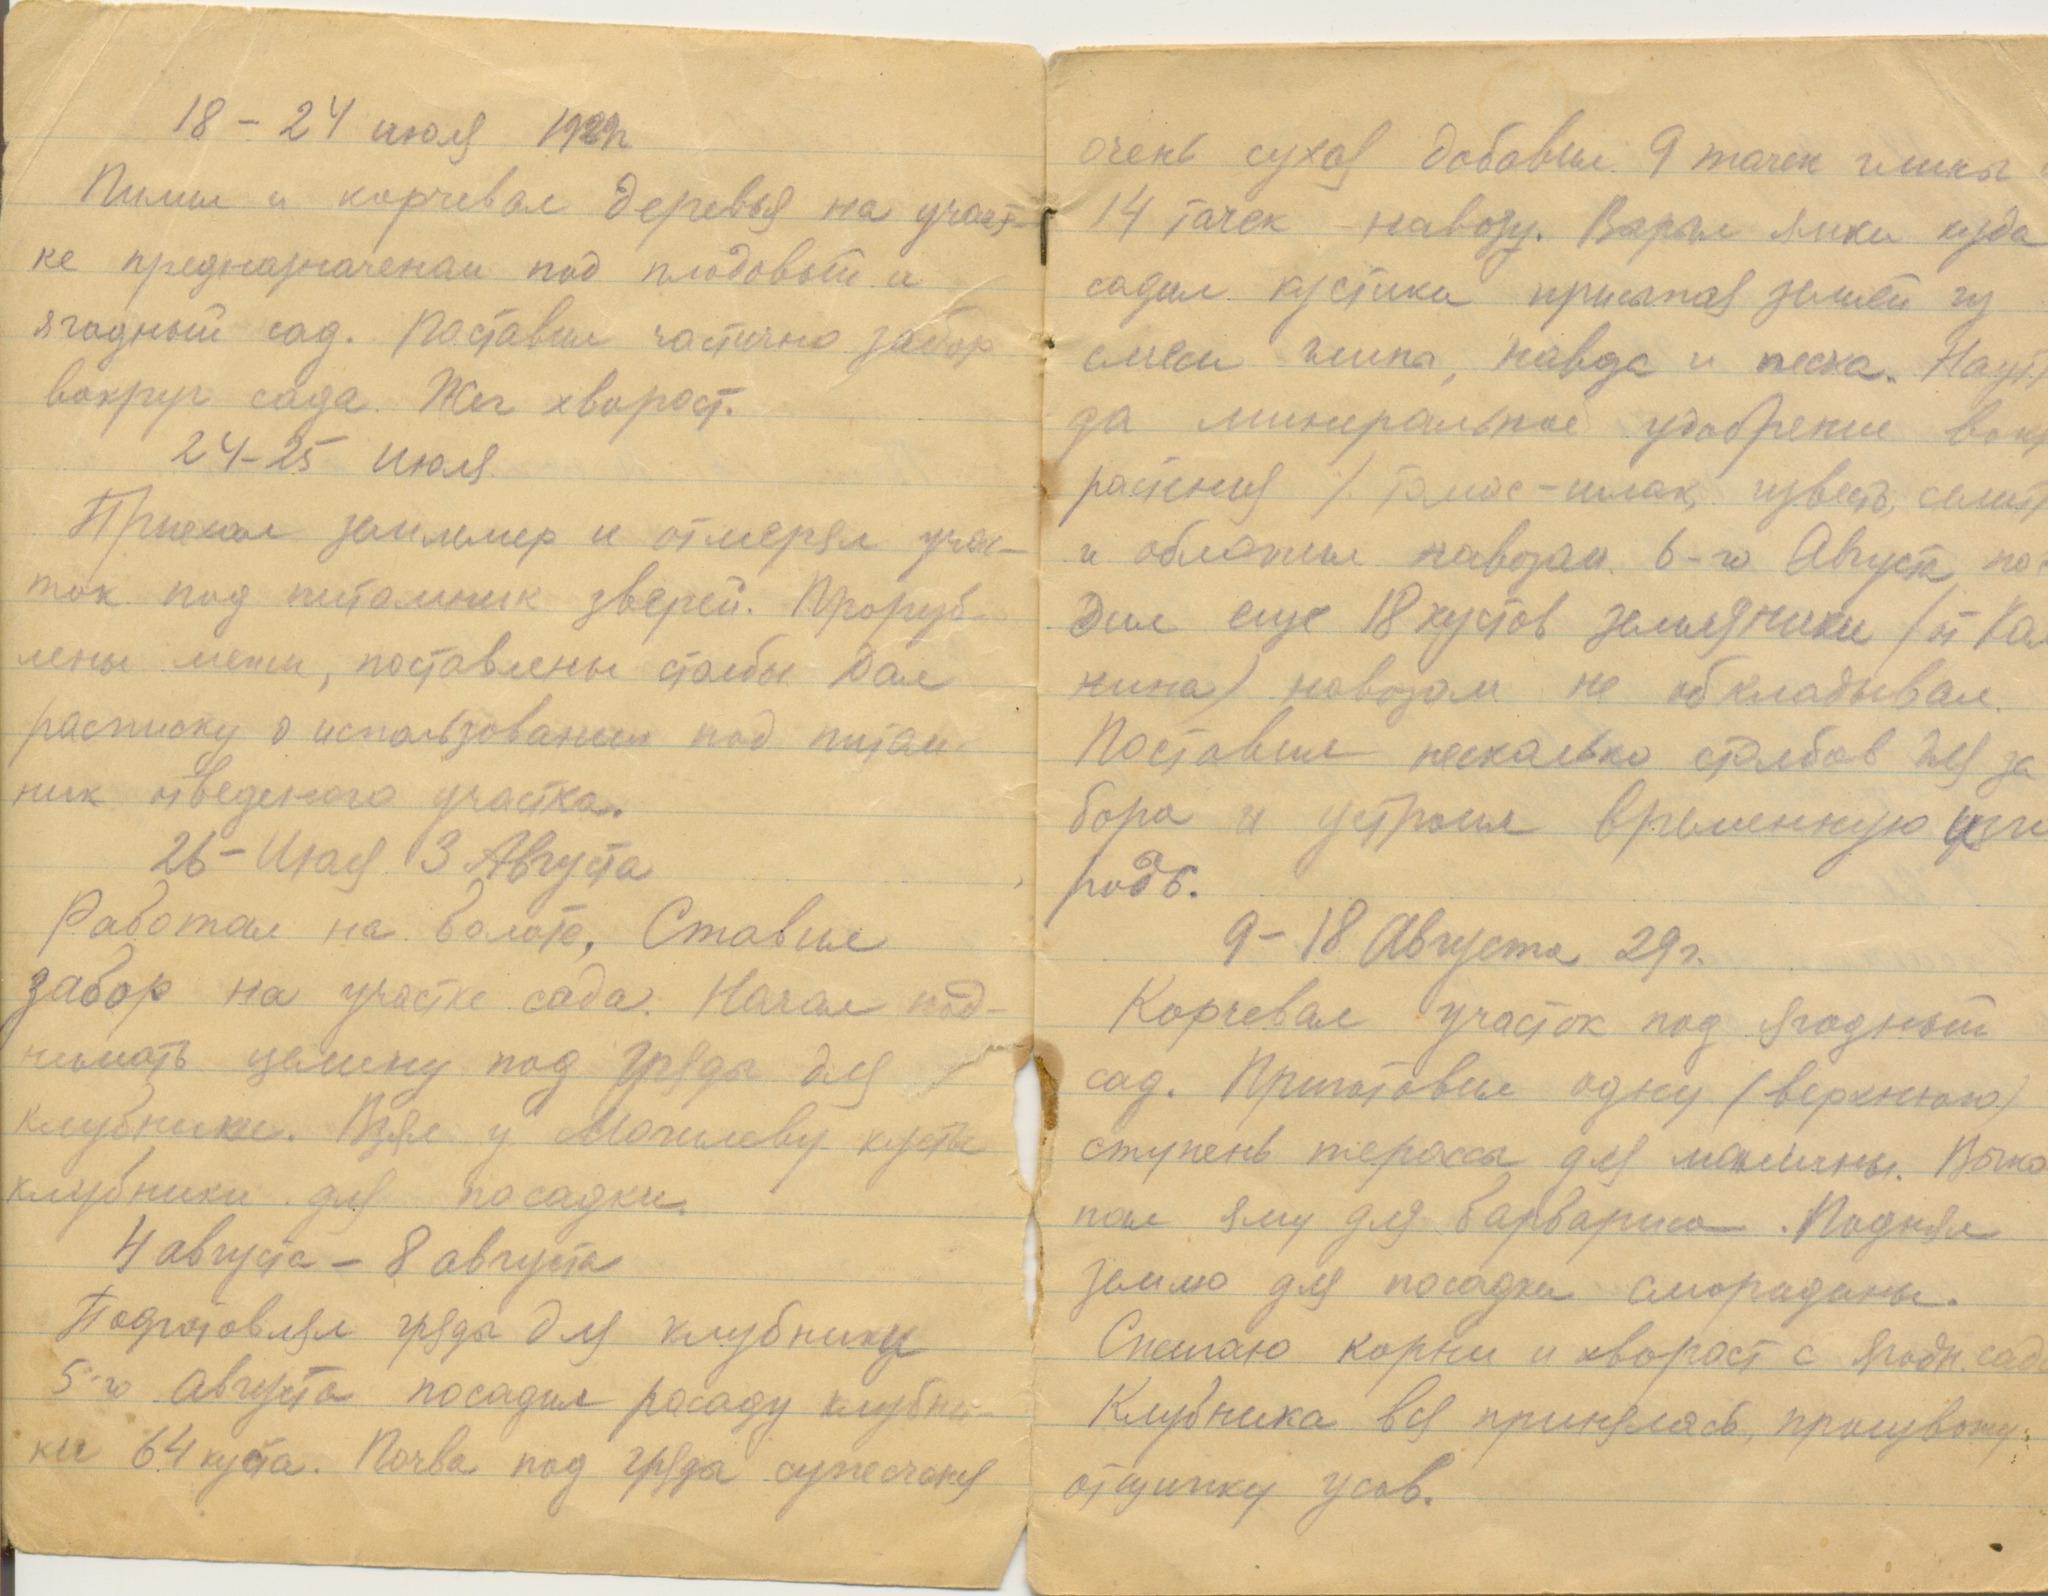 18 – 24 июля 1929г
Пилил и корчевал деревья на участ-
ке предназначенам под плодовый и
ягодный сад. Поставил частично забор
вокруг сада. Жег хворост.
24-25 июля
Приехал землемер и отмерял учас-
ток под питомник зверей. Проруб-
лены межи, поставлены столбы Дал
расписку о использовании под питом-
ник отведеного участка.
26 – Июля 3 Августа
Работал на болоте, Ставил
забор на участке сада. Начал под-
нимать целину под гряды для
клубники. Взял у Могилеву кусты
клубники для посадки.
4 августа – 8 августа
Подготовлял гряды для клубники
5-го августа посадил расаду клубни-
ки 64 куста. Почва под гряды супесчаная
очень сухая добавил 9 тачек глины
14 тачек навозу. Взрыл ямки куда
садил кустики присыпая землей из
смеси глины, навоза и песка.
да минеральное удобрение
растения / томас-шлак, известь,
и обложил навозам 6-го Август по
дил еще 18 кустов земляники / от Кал
нина / навозам не обкладывал.
Поставил несколько столбов для за
бора и устроил временную изго
родь.
9 – 18 Августа 29г.
Корчевал участок под ягодный
сад. Приготовил одну (верхнюю)
ступень терассы для малины. Выко
пал яму для барбариса. Поднял
землю для посадки смородины.
корни и хворост с ягодн. сада
Клубника вся принялась,
отщипку усов.